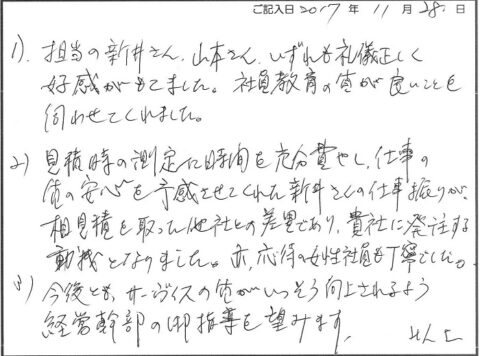 ご記入日 2017 年 11 月 28 日
1). 担当の新井さん、山本さん、いずれも礼儀正しく
好感がもてました。社員教育の質が良いことを
伺わせてくれました。
2) 見積時の測定に時間を充分費やし、仕事の
質の安心を予感させてくれた新井さんの仕事振りが、
相見積を取った他社との差異であり、貴社に発注する
動機となりました。亦、応待の女性社員も丁寧でした。
3) 今後とも、サービイスの質がいっそう向上されるよう
経営幹部の御指導を望みます。